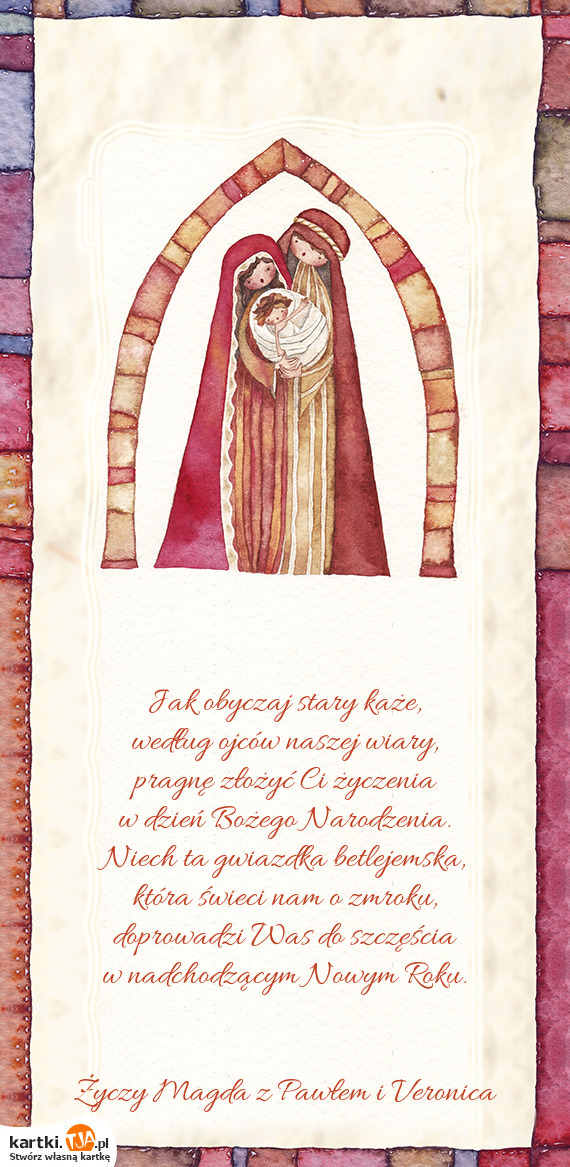 Jak obyczaj stary każe,
według ojców naszej wiary,
pragnę złożyć Ci życzenia
w dzień Bożego Narodzenia.
Niech ta gwiazdka betlejemska,
która świeci nam o zmroku,
doprowadzi Was do szczęścia
w nadchodzącym Nowym Roku.
Życzy Magda z Pawłem i Veronica
kartki.TJA.pl
Stwórz własną kartkę